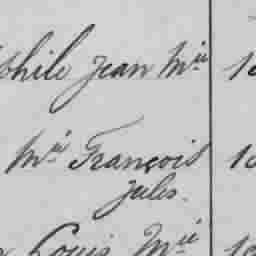 phile Jean Mie 1
Mie François 1
Jules.
Louis Mie 1